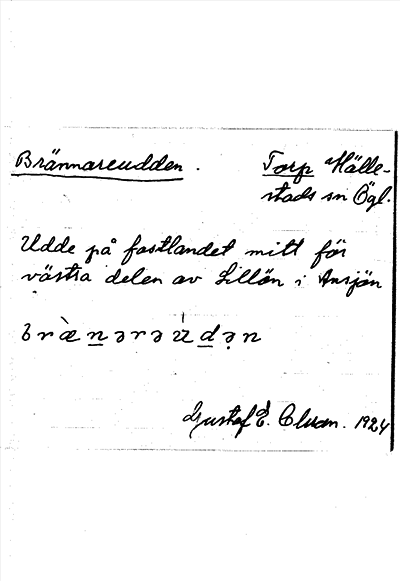 Brännareudden. Torp Hälle-
stads sn Ögl.
Udde på fastlandet mitt för
västra delen av Lillön i Ansjön
Gustaf E. 1924